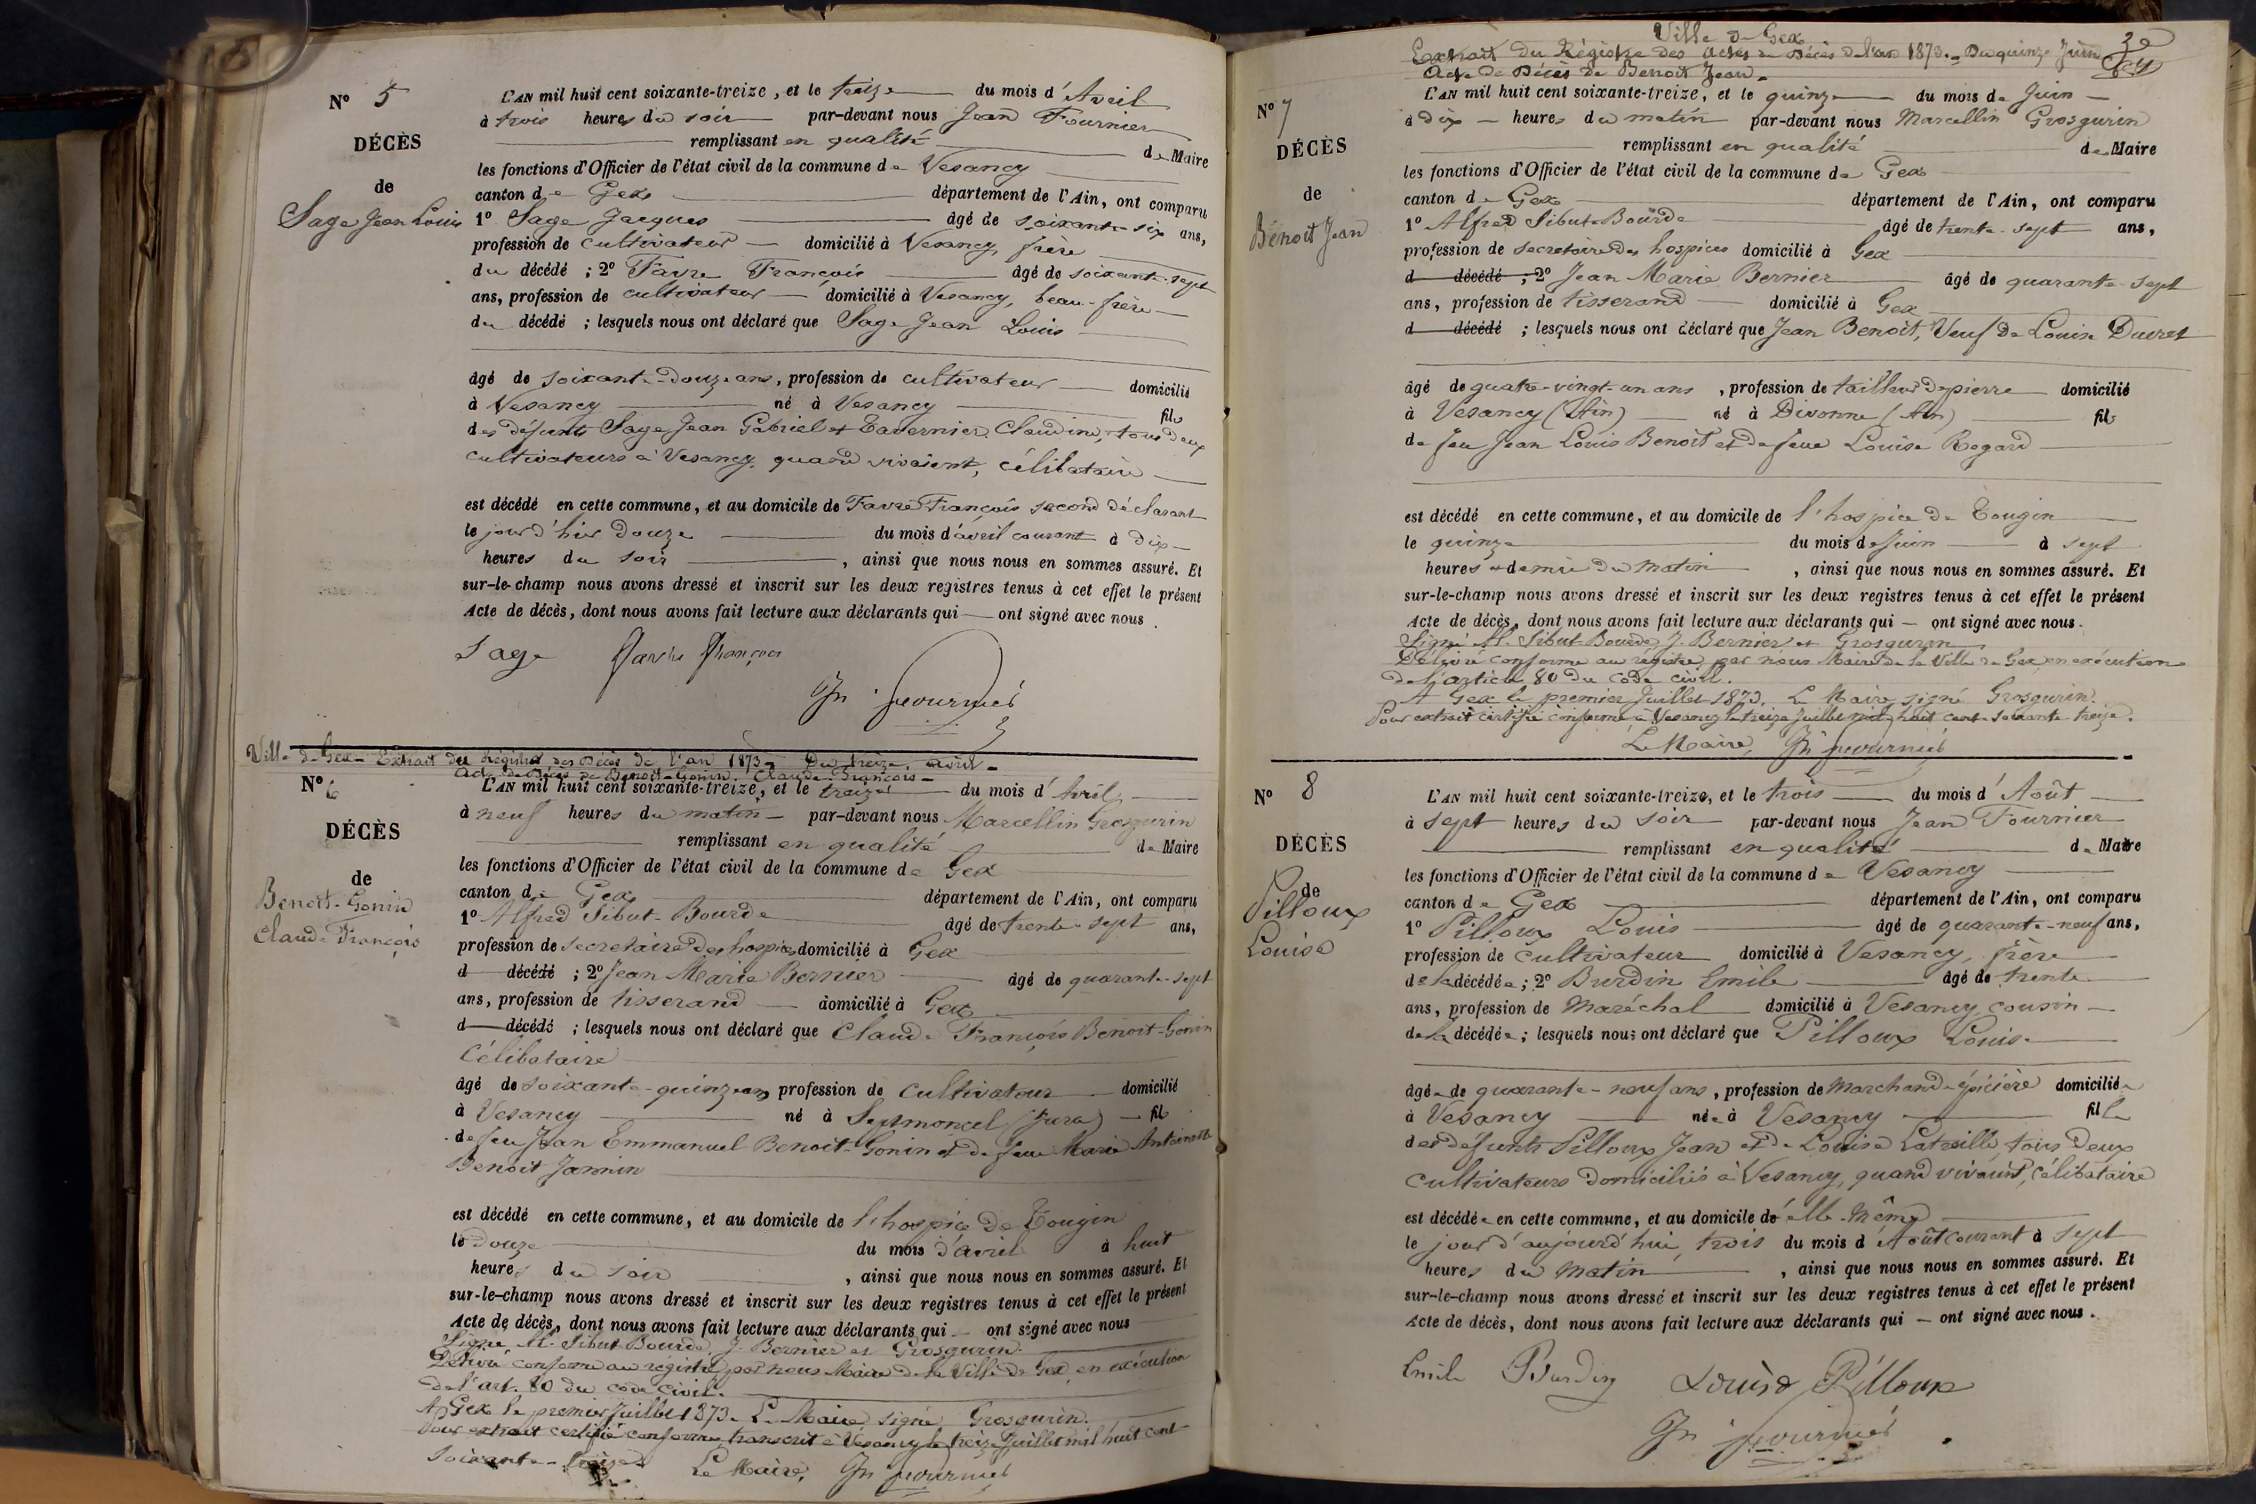 N° 5
DÉCÈS
de
Sage Jean Louis
L'AN mil huit cent soixante-treize, et le treize du mois d'Avril
à trois heures du soir par-devant nous Jean Fournier
remplissant en qualité de Maire
les fonctions d'Officier de l'état civil de la commune de Vesancy
canton de Gex département de l'Ain, ont comparu
1° Sage Jacques âgé de soixante-six ans,
profession de cultivateur domicilié à Vesancy, frère
du décédé ; 2° Favre François âgé de soixante-sept
ans, profession de cultivateur domicilié à Vesancy, beau-frère
du décédé ; lesquels nous ont déclaré que Sage Jean Louis
âgé de soixante-douze ans, profession de cultivateur domicilié
à Vesancy né à Vesancy fils
des défunts Sage Jean Gabriel et Tavernier Claudine, tous deux
cultivateurs à Vesancy, quand vivaient, célibataire
est décédé en cette commune, et au domicile de Favre François second déclarant
le jour d'hier douze du mois d'avril courant à dix
heures du soir, ainsi que nous nous en sommes assuré. Et
sur-le-champ nous avons dressé et inscrit sur les deux registres tenus à cet effet le présent
Acte de décès, dont nous avons fait lecture aux déclarants qui ont signé avec nous.
Sage Favre François
Jn fournier
Ville de Gex Extrait du Régistre des Décès de l'an 1873. Du treize avril
Acte de Décès de Benoit-Gonin Claude François
N° 6
DÉCÈS
de
Benoit-Gonin
Claude François
L'AN mil huit cent soixante-treize, et le treize du mois d'Avril
à neuf heures du matin par-devant nous Marcellin Grosgurin
remplissant en qualité de Maire
les fonctions d'Officier de l'état civil de la commune de Gex
canton de Gex département de l'Ain, ont comparu
1° Alfred Sibut-Bourde âgé de trente-sept ans,
profession de secrétaire des hospices domicilié à Gex
d décédé ; 2° Jean Marie Bernier âgé de quarante-sept
ans, profession de tisserand domicilié à Gex
d décédé ; lesquels nous ont déclaré que Claude François Benoit-Gonin
Célibataire
âgé de soixante-quinze ans profession de cultivateur domicilié
à Vesancy né à Septmoncel (Jura) fils
de feu Jean Emmanuel Benoit-Gonin et de feue Marie Antoinette
Benoit Jannin
est décédé en cette commune, et au domicile de l'hospice de Tougin
le douze du mois d'avril à huit
heures du soir, ainsi que nous nous en sommes assuré. Et
sur-le-champ nous avons dressé et inscrit sur les deux registres tenus à cet effet le présent
Acte de décès, dont nous avons fait lecture aux déclarants qui ont signé avec nous
Signé A. Sibut Bourde, J. Bernier et Grosgurin.
Délivré conforme au régistre par nous Maire de la Ville de Gex, en exécution
de l'art. 80 du code civil.
A Gex le premier Juillet 1873. Le Maire signé Grosgurin.
Pour extrait certifié conforme, transcrit à Vesancy le treize Juillet mil huit cent
soixante-treize. Le Maire, Jn fournier
Ville de Gex
Extrait du Régistre des actes de Décès de l'an 1873. Du quinze Juin
Acte de Décès de Benoit Jean.
N° 7
DÉCÈS
de
Benoit Jean
L'AN mil huit cent soixante-treize, et le quinze du mois de Juin
à dix heures du matin par-devant nous Marcellin Grosgurin
remplissant en qualité de Maire
les fonctions d'Officier de l'état civil de la commune de Gex
canton de Gex département de l'Ain, ont comparu
1° Alfred Sibut-Bourde âgé de trente-sept ans,
profession de secrétaire des hospices domicilié à Gex
d décédé ; 2° Jean Marie Bernier âgé de quarante-sept
ans, profession de tisserand domicilié à Gex
d décédé ; lesquels nous ont déclaré que Jean Benoit, Veuf de Louise Duvret
âgé de quatre-vingt-un ans, profession de tailleur de pierre domicilié
à Vesancy (Ain) né à Divonne (Ain) fils
de feu Jean Louis Benoit et de feue Louise Rogard
est décédé en cette commune, et au domicile de l'hospice de Tougin
le quinze du mois de Juin à sept
heures et demie du matin, ainsi que nous nous en sommes assuré. Et
sur-le-champ nous avons dressé et inscrit sur les deux registres tenus à cet effet le présent
Acte de décès, dont nous avons fait lecture aux déclarants qui ont signé avec nous.
Signé A. Sibut Bourde, J. Bernier et Grosgurin
Délivré conforme au régistre, par nous Maire de la Ville de Gex, en exécution
de l'article 80 du code civil.
A Gex le premier Juillet 1873. Le Maire signé Grosgurin.
Pour extrait certifié conforme à Vesancy le treize Juillet mil huit cent soixante treize.
Le Maire, Jn fournier
N° 8
DÉCÈS
de
Pilloux
Louise
L'AN mil huit cent soixante-treize, et le trois du mois d'Août
à sept heures du soir par-devant nous Jean Fournier
remplissant en qualité de Maire
les fonctions d'Officier de l'état civil de la commune de Vesancy
canton de Gex département de l'Ain, ont comparu
1° Pilloux Louis âgé de quarante-neuf ans,
profession de cultivateur domicilié à Vesancy, frère
de la décédée ; 2° Burdin Emile âgé de trente
ans, profession de Maréchal domicilié à Vesancy, cousin
de la décédée ; lesquels nous ont déclaré que Pilloux Louise
âgée de quarante-neuf ans, profession de Marchande épicière domiciliée
à Vesancy née à Vesancy fille
des défunts Pilloux Jean et de Louise Latreille, tous deux
cultivateurs domiciliés à Vesancy, quand vivaient, célibataire
est décédée en cette commune, et au domicile de elle-même
le jour d'aujourd'hui, trois du mois d'Août courant à sept
heures du matin, ainsi que nous nous en sommes assuré. Et
sur-le-champ nous avons dressé et inscrit sur les deux registres tenus à cet effet le présent
Acte de décès, dont nous avons fait lecture aux déclarants qui ont signé avec nous.
Emile Burdin Louis Pilloux
Jn fournier